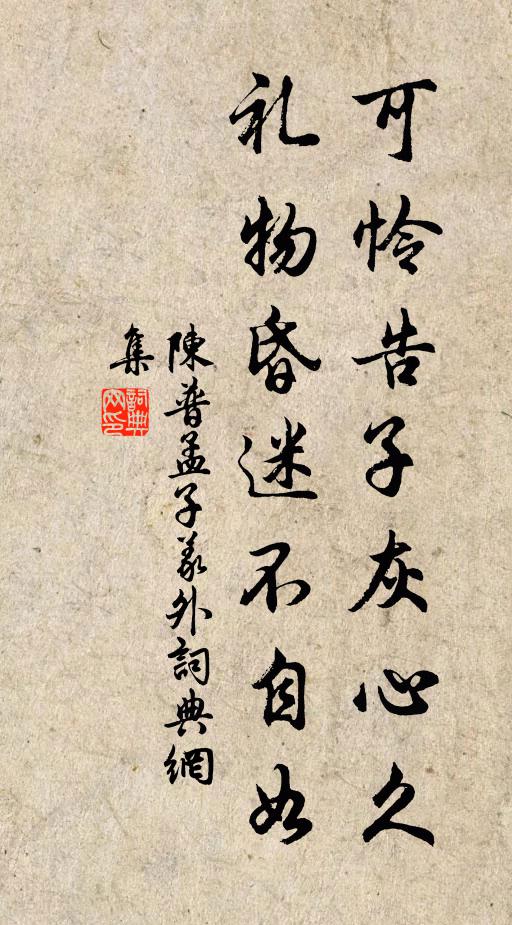 可怜告子灰心久
礼物昏迷不自如
陳普孟子义外詞典網
集
詞典網印